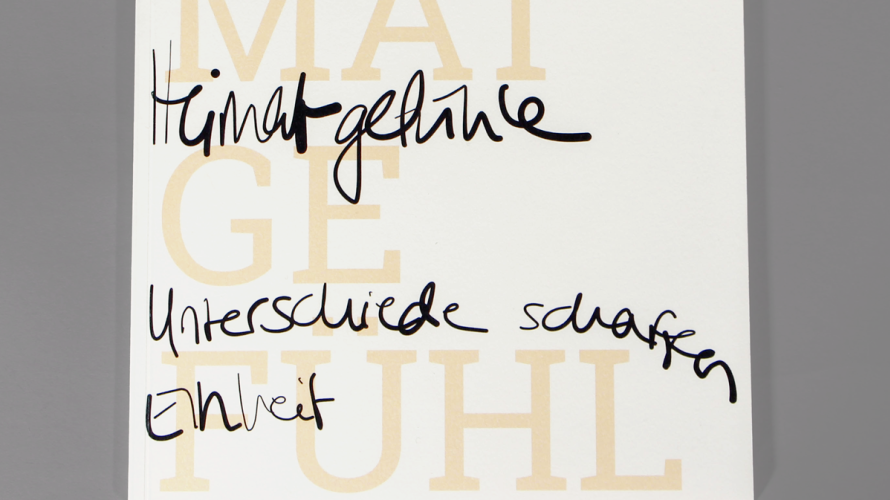 MAT
Heimatgefühle
GE
Unterschiede schaffen
FÜHL
Einheit